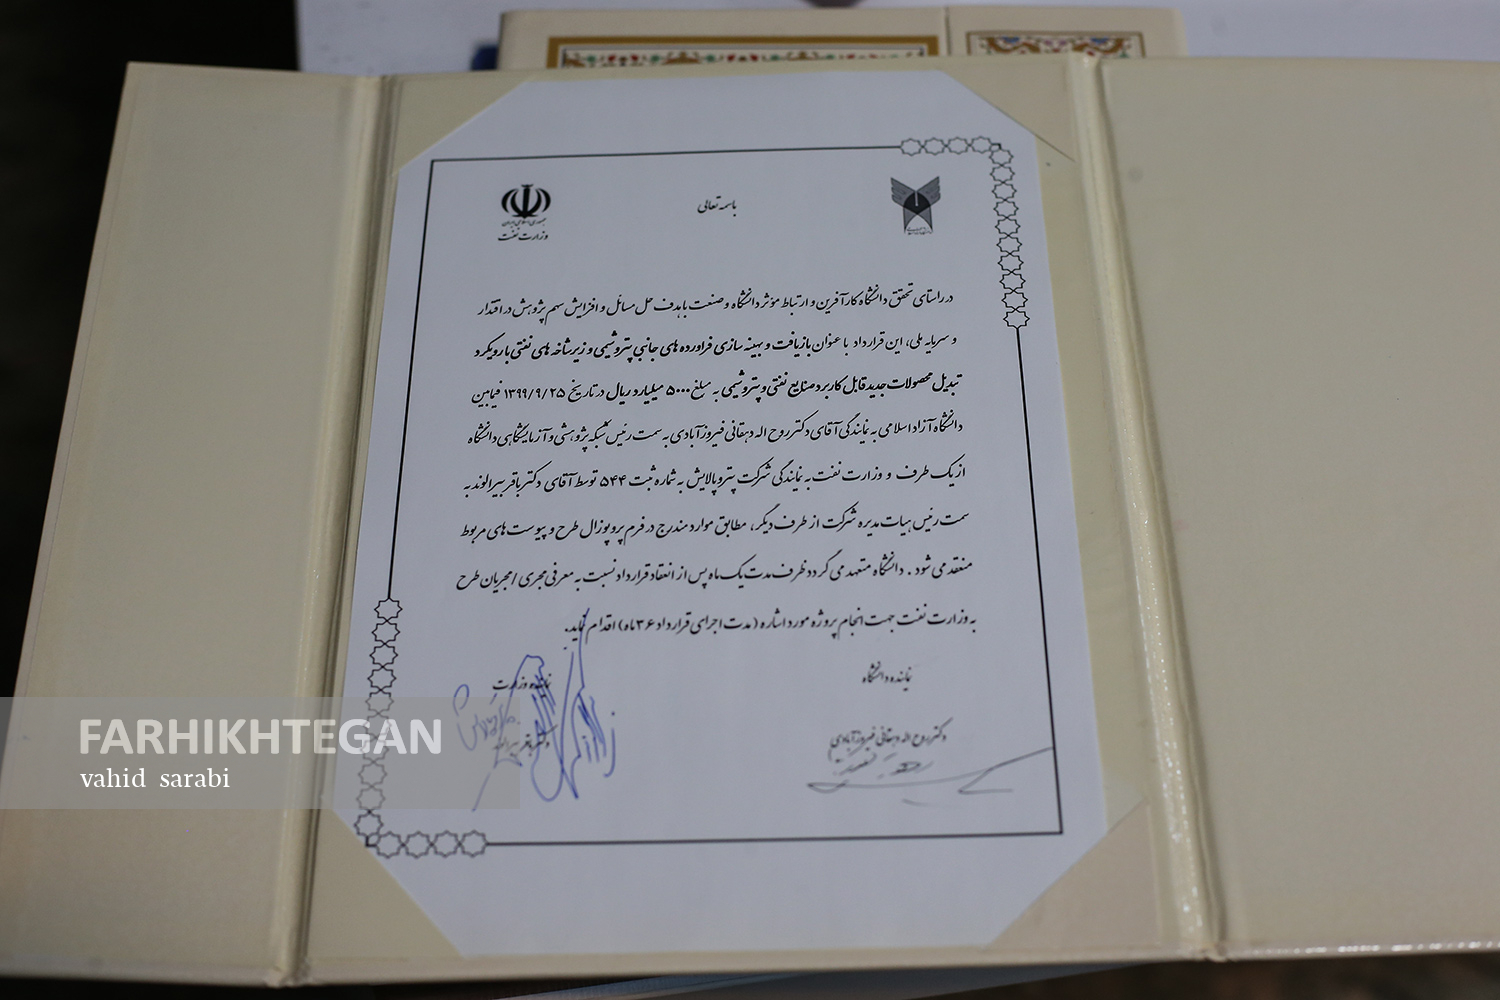 باسمه تعالی
جمهوری اسلامی ایران
وزارت نفت
در راستای تحقق دانشگاه کارآفرین و ارتباط مؤثر دانشگاه و صنعت با هدف حل مسائل و افزایش سهم پژوهش در اقتدار
و سرمایه ملی، این قرارداد با عنوان بازیافت و بهینه سازی فراورده های جانبی پتروشیمی و زیرشاخه های نفتی با رویکرد
تبدیل محصولات جدید قابل کاربرد صنایع نفتی و پتروشیمی به مبلغ ۵۰۰۰ میلیارد ریال در تاریخ ۱۳۹۹/۹/۲۵ فیمابین
دانشگاه آزاد اسلامی به نمایندگی آقای دکتر روح اله دهقانی فیروزآبادی به سمت رئیس شبکه پژوهشی و آزمایشگاهی دانشگاه
از یک طرف و وزارت نفت به نمایندگی شرکت پتروپالایش به شماره ثبت ۵۴۴ توسط آقای دکتر باقر بیرالوند به
سمت رئیس هیات مدیره شرکت از طرف دیگر، مطابق موارد مندرج در فرم پروپوزال طرح و پیوست های مربوط
منعقد می شود . دانشگاه متعهد می گردد ظرف مدت یک ماه پس از انعقاد قرارداد نسبت به معرفی مجری / مجریان طرح
به وزارت نفت جهت انجام پروژه مورد اشاره (مدت اجرای قرارداد ۳۶ ماه) اقدام نماید.
نماینده دانشگاه
نماینده وزارت
دکتر روح اله دهقانی فیروزآبادی
دکتر باقر
FARHIKHTEGAN
vahid sarabi